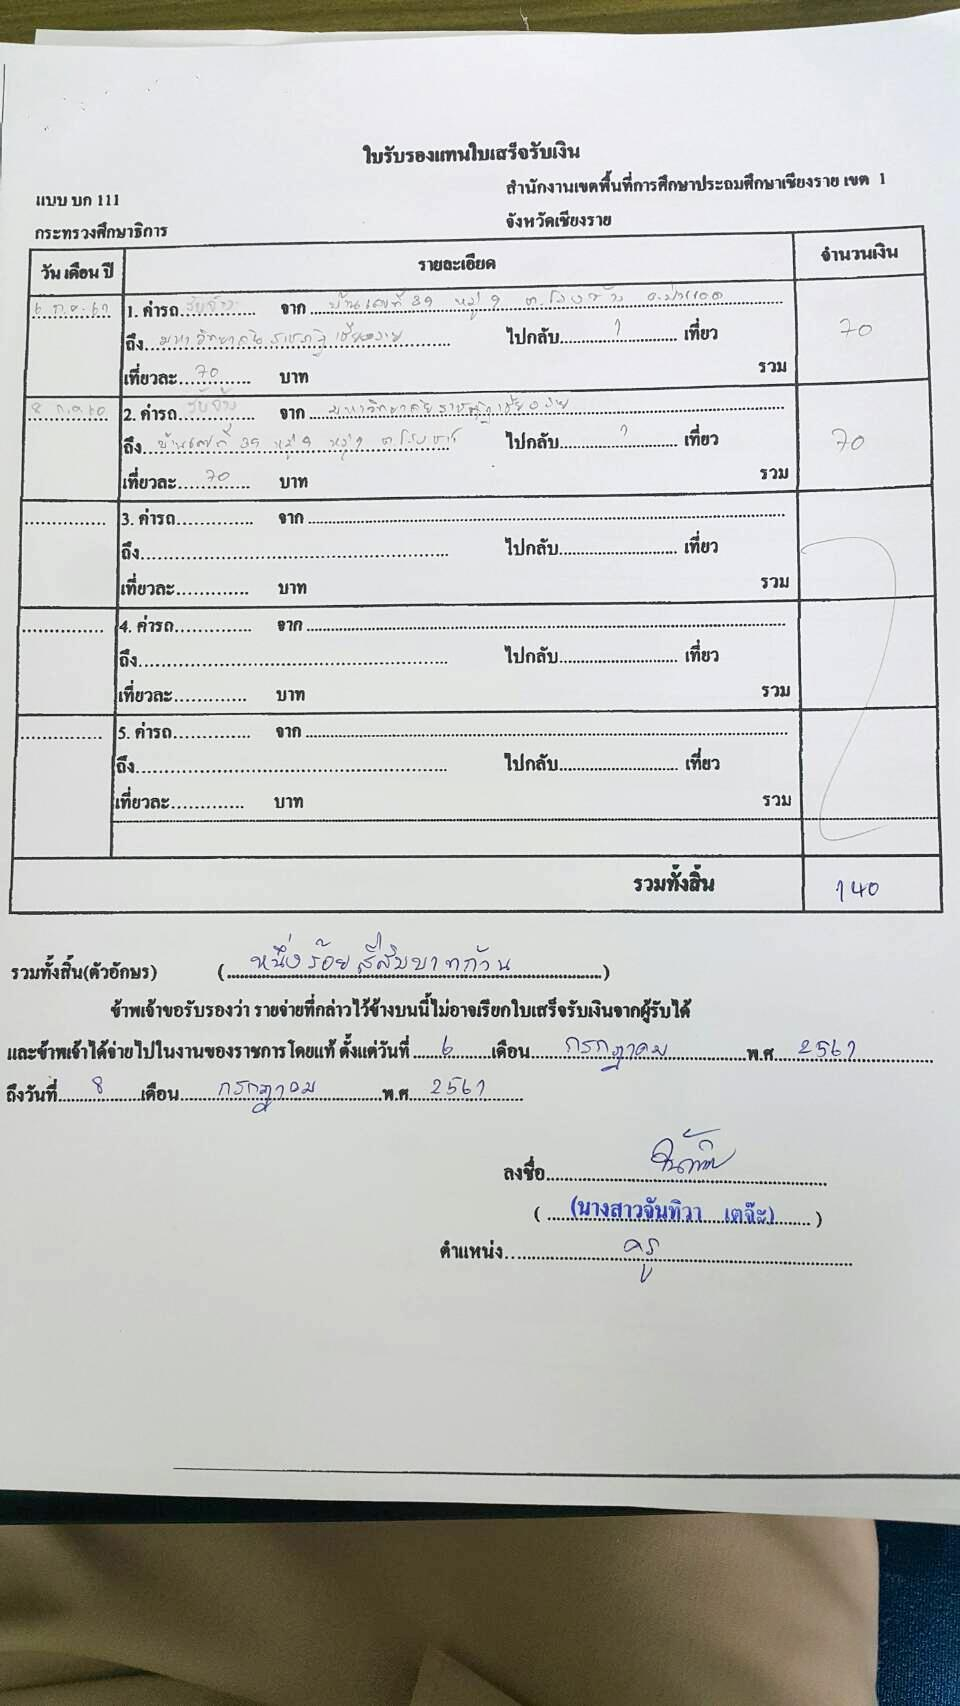 ใบรับรองแทนใบเสร็จรับเงิน
แบบ บก 111
สำนักงานเขตพื้นที่การศึกษาประถมศึกษาเชียงราย เขต 1
กระทรวงศึกษาธิการ
จังหวัดเชียงราย
วัน เดือน ปี รายละเอียด จำนวนเงิน
6 ก.ค. 61 1. ค่ารถ รับจ้าง จาก บ้านเลขที่ 39 หมู่ 9 ต.โรงช้าง อ.ป่าแดด
ถึง มหาวิทยาลัยราชภัฏเชียงราย ไปกลับ 1 เที่ยว 70
เที่ยวละ 70 บาท รวม
8 ก.ค. 2. ค่ารถ รับจ้าง จาก มหาวิทยาลัยราชภัฏเชียงราย
ถึง บ้านเลขที่ 39 หมู่ 9 หมู่ 9 ต.โรงช้าง ไปกลับ 1 เที่ยว 70
เที่ยวละ 70 บาท รวม
3. ค่ารถ จาก
ถึง ไปกลับ เที่ยว
เที่ยวละ บาท รวม
4. ค่ารถ จาก
ถึง ไปกลับ เที่ยว
เที่ยวละ บาท รวม
5. ค่ารถ จาก
ถึง ไปกลับ เที่ยว
เที่ยวละ บาท รวม
รวมทั้งสิ้น 140
รวมทั้งสิ้น(ตัวอักษร) (หนึ่งร้อยสี่สิบบาทถ้วน)
ข้าพเจ้าขอรับรองว่า รายจ่ายที่กล่าวไว้ข้างบนนี้ไม่อาจเรียกใบเสร็จรับเงินจากผู้รับได้
และข้าพเจ้าได้จ่ายไปในงานของราชการโดยแท้ ตั้งแต่วันที่ 6 เดือน กรกฎาคม พ.ศ 2561
ถึงวันที่ 8 เดือน กรกฎาคม พ.ศ. 2561
ลงชื่อ จันทิวา
( (นางสาวจันทิวา เตจ๊ะ) )
ตำแหน่ง ครู